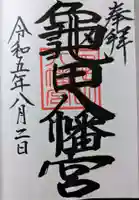 奉拝
龜田八幡宮
令和五年八月二日